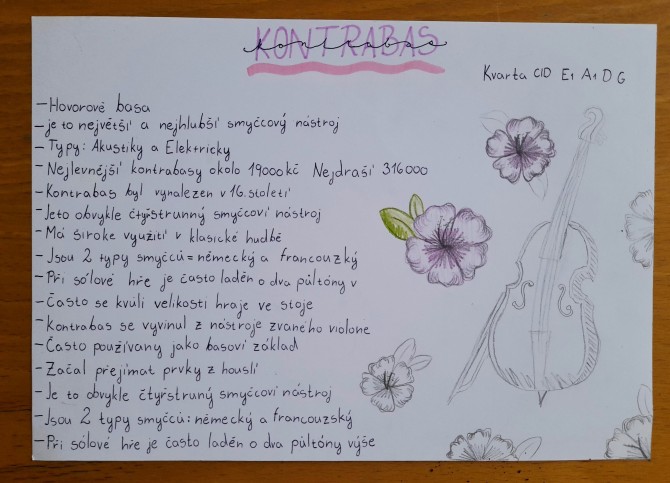 KONTRABAS
kontrabas
Kvarta C1D E1 A1 D G
- Hovorově basa
- je to největší a nejhlubší smyčcový nástroj
- Typy: Akustiky a Elektricky
- Nejlevnější kontrabasy okolo 19000kč Nejdraší 316000
- Kontrabas byl vynalezen v 16. století
- Jeto obvykle čtyřstrunný smyčcoví nástroj
- Má široke využití v klasické hudbě
- Jsou 2 typy smyčců = německý a francouzký
- Při sólové hře je často laděn o dva půltóny v
- Často se kvůli velikosti hraje ve stoje
- Kontrabas se vyvinul z nástroje zvaného violone
- Často používany jako basoví základ
- Začal přejímat prvky z houslí
- Je to obvykle čtyřstruný smyčcoví nástroj
- Jsou 2 typy smyčců: německý a francouzský
- Při sólové hře je často laděn o dva půltóny výše